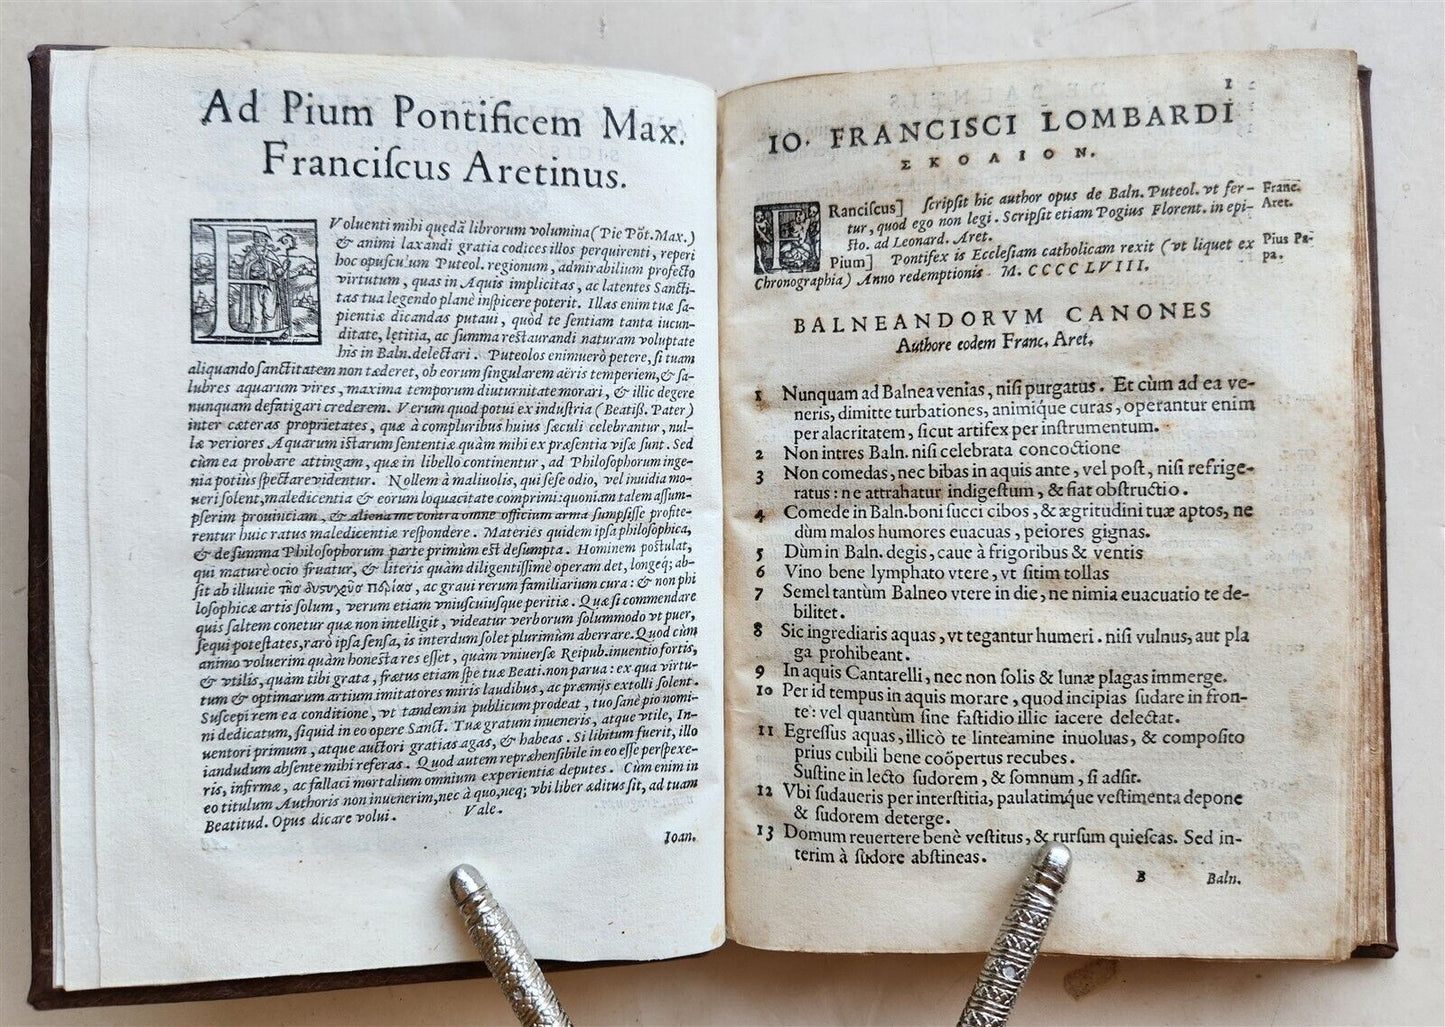 Ad Pium Pontificem Max.
Franciſcus Aretinus.
EVoluenti mihi quędã librorum volumina (Pie Põt. Max.)
& animi laxandi gratia codices illos perquirenti, reperi
hoc opuſcuľum Puteol. regionum, admirabilium profecto
virtutum, quas in Aquis implicitas, ac latentes Sancti-
tas tua legendo planè inſpicere poterit. Illas enim tuæ ſa-
pientiæ dicandas putaui, quòd te ſentiam tanta iucun-
ditate, lętitia, ac ſumma reſtaurandi naturam voluptate
his in Baln. delectari. Puteolos enimuerò petere, ſi tuam
aliquando ſanctitatem non tæderet, ob eorum ſingularem aëris temperiem, & ſa-
lubres aquarum vires, maxima temporum diuturnitate morari, & illic degere
nunquam defatigari crederem. Verum quod potui ex induſtria (Beatiß. Pater)
inter cæteras proprietates, quæ à compluribus huius ſæculi celebrantur, nul-
læ veriores Aquarum iſtarum ſententiæ quàm mihi ex præſentia viſæ ſunt. Sed
cùm ea probare attingam, quæ in libello continentur, ad Philoſophorum inge-
nia potiùs ſpectare videntur. Nollem à maliuolis, qui ſeſe odio, vel inuidia mo-
ueri ſolent, maledicentia & eorum loquacitate comprimi: quoniam talem aſſum-
pſerim prouinciam, & aliena me contra omne officium arma ſumpſiſſe profite-
rentur huic ratus maledicentiæ reſpondere. Materies quidem ipſa philoſophica,
& de ſumma Philoſophorum parte primùm eſt deſumpta. Hominem poſtulat,
qui maturè ocio fruatur, & literis quàm diligentiſſimè operam det, longeq; ab-
ſit ab illuuie, ac graui rerum familiarium cura: & non phi
loſophicæ artis ſolum, verum etiam vniuſcuiuſque peritiæ. Quæ ſi commendare
quis ſaltem conetur quæ non intelligit, videatur verborum ſolummodo vt puer,
ſequi poteſtates, rarò ipſa ſenſa, is interdum ſolet plurimùm aberrare. Quod cùm
animo voluerim quàm honeſta res eſſet, quàm vniuerſæ Reipub. inuentio fortis,
& vtilis, quàm tibi grata, frætus etiam ſpe tuæ Beati. non parua: ex qua virtu-
tum & optimarum artium imitatores miris laudibus, ac præmijs extolli ſolent.
Suſcepi rem ea conditione, vt tandem in publicum prodeat, tuo ſanè pio nomi-
ni dedicatum, ſiquid in eo opere Sanct. Tuæ gratum inueneris, atque vtile, In-
uentori primum, atque auctori gratias agas, & habeas. Si libitum fuerit, illo
iandudum abſente mihi referas. Quod autem repræhenſibile in eo eſſe perſpexe-
ris, infirmæ, ac fallaci mortalium omnium experientiæ deputes. Cùm enim in
eo titulum Authoris non inuenerim, nec à quo, neq; vbi liber æditus ſit, ad tuam
Beatitud. Opus dicare volui. Vale.
Ioan.
1
IO. FRANCISCI LOMBARDI
ΣΚΟΛΙΟΝ.
FRanciſcus] ſcripſit hic author opus de Baln. Puteol. vt fer-
tur, quod ego non legi. Scripſit etiam Pogius Florent. in epi-
ſto. ad Leonard. Aret.
Franc.
Aret.
Pium] Pontifex is Eccleſiam catholicam rexit (vt liquet ex
Chronographia) Anno redemptionis M. CCCCLVIII.
Pius Pa-
pa.
BALNEANDORVM CANONES
Authore eodem Franc. Aret.
1 Nunquam ad Balnea venias, niſi purgatus. Et cùm ad ea ve-
neris, dimitte turbationes, animiq́ue curas, operantur enim
per alacritatem, ſicut artifex per inſtrumentum.
2 Non intres Baln. niſi celebrata concoctione
3 Non comedas, nec bibas in aquis ante, vel poſt, niſi refrige-
ratus: ne attrahatur indigeſtum, & fiat obſtructio.
4 Comede in Baln. boni ſucci cibos, & ægritudini tuæ aptos, ne
dùm malos humores euacuas, peiores gignas.
5 Dùm in Baln. degis, caue à frigoribus & ventis
6 Vino bene lymphato vtere, vt ſitim tollas
7 Semel tantùm Balneo vtere in die, ne nimia euacuatio te de-
bilitet.
8 Sic ingrediaris aquas, vt tegantur humeri. niſi vulnus, aut pla
ga prohibeant.
9 In aquis Cantarelli, nec non ſolis & lunæ plagas immerge.
10 Per id tempus in aquis morare, quod incipias ſudare in fron-
te: vel quantùm ſine faſtidio illic iacere delectat.
11 Egreſſus aquas, illicò te linteamine inuoluas, & compoſito
prius cubili bene coöpertus recubes.
Suſtine in lecto ſudorem, & ſomnum, ſi adſit.
12 Vbi ſudaueris per interſtitia, paulatimq́ue veſtimenta depone
& ſudorem deterge.
13 Domum reuertere benè veſtitus, & rurſum quieſcas. Sed in-
terim à ſudore abſtineas.
B Baln.